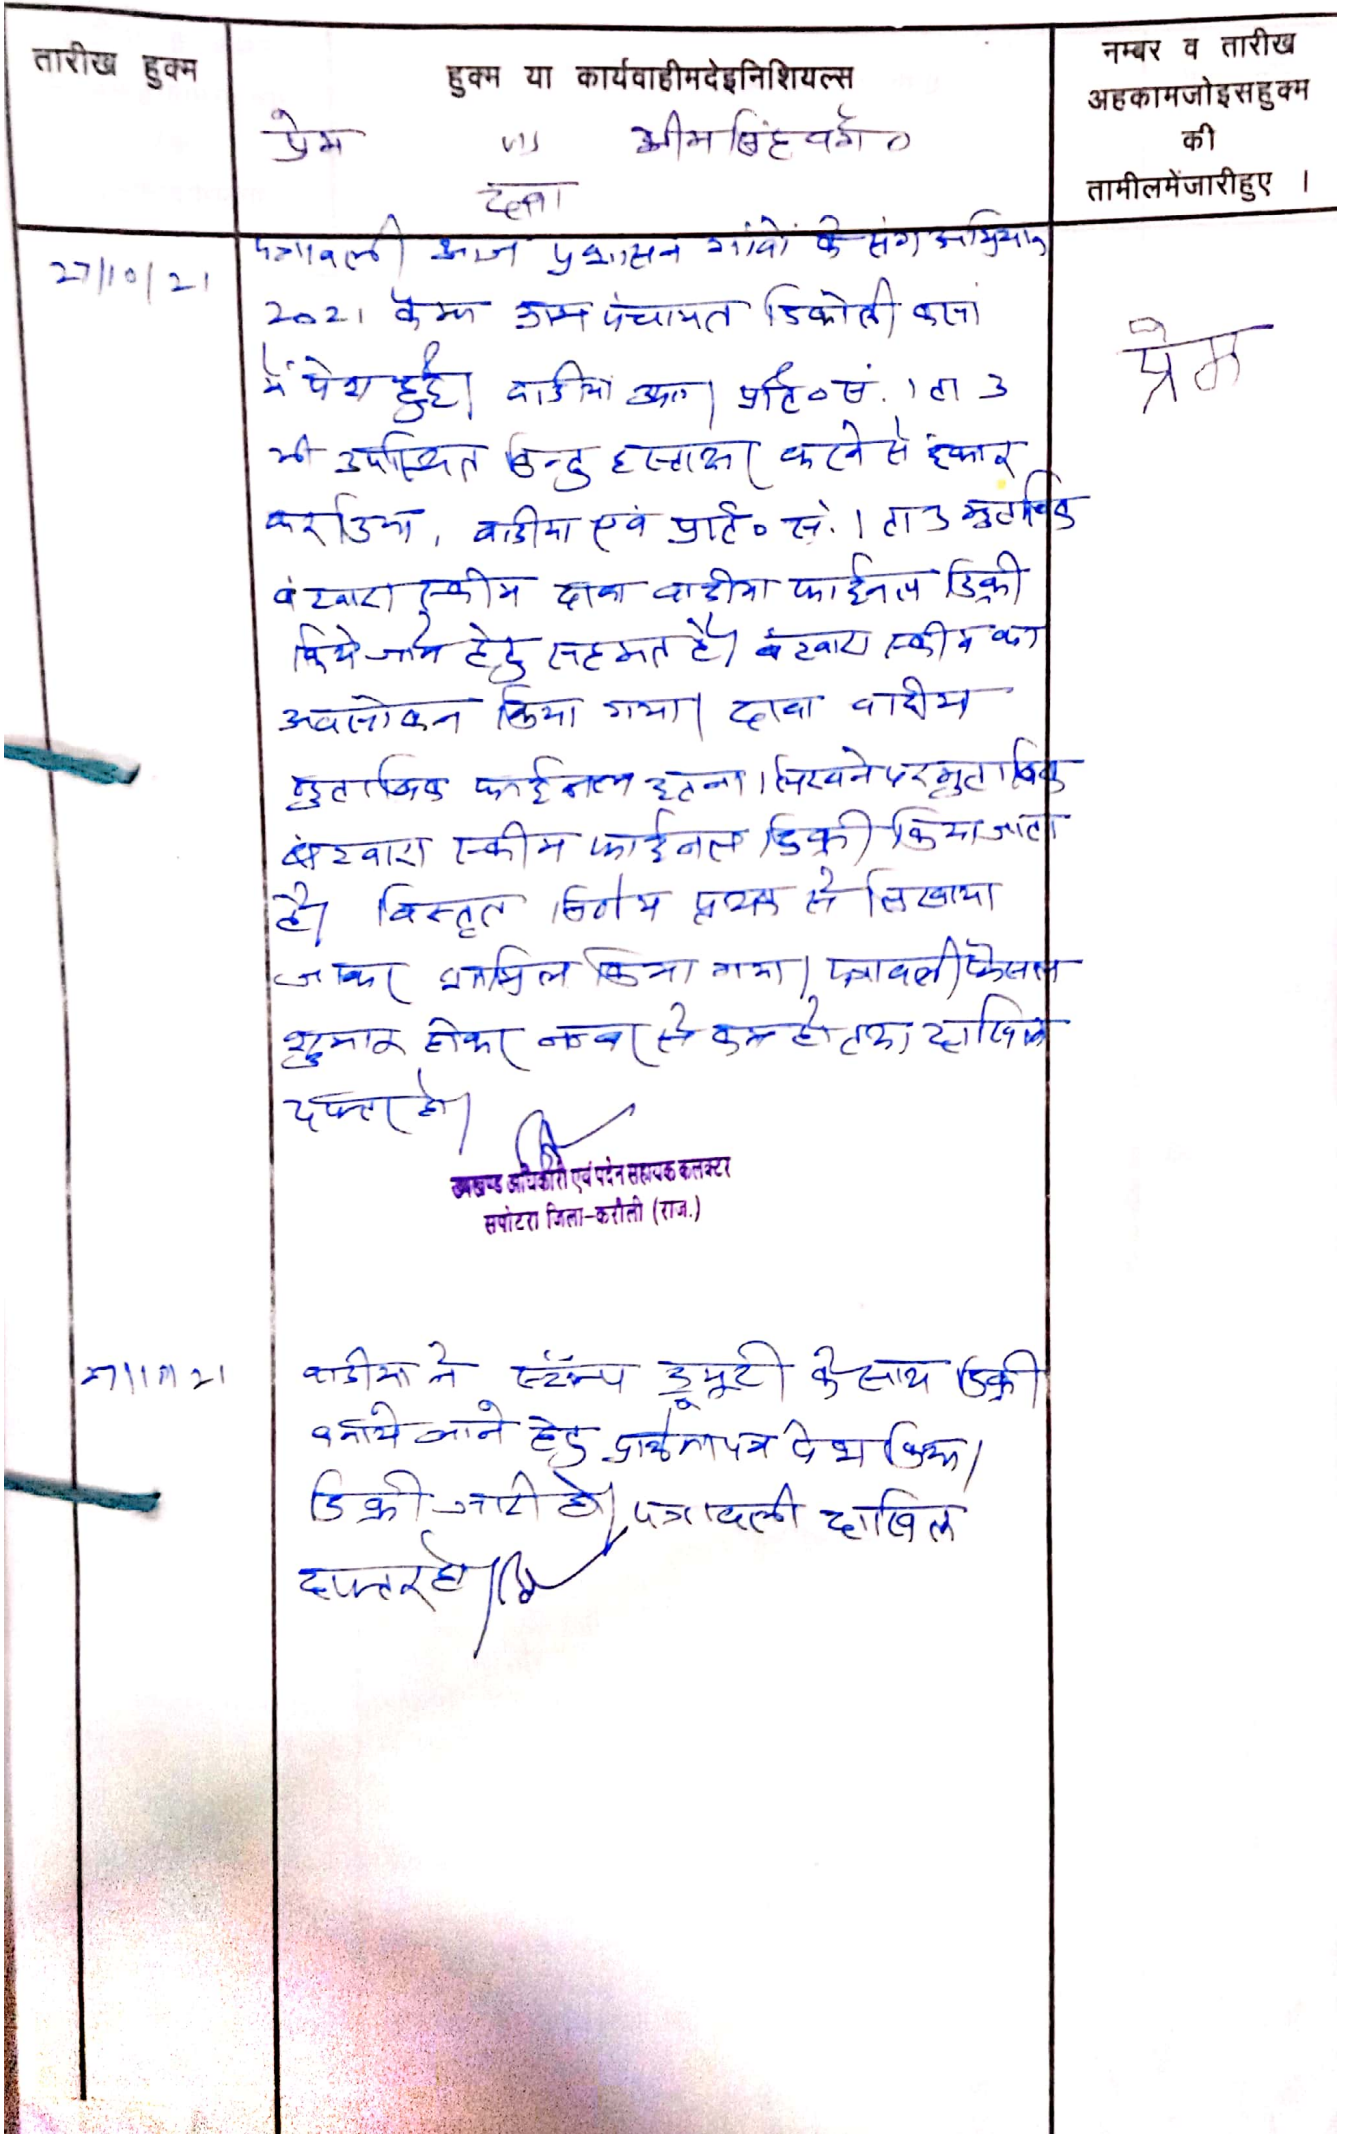 तारीख हुक्म
हुक्म या कार्यवाहीमदेइनिशियल्स
नम्बर व तारीख
अहकामजोइसहुक्म
की
तामीलमेंजारीहुए ।
प्रेम v/s भीमसिंह वगै०
दावा
27/10/21
पत्रावली आज प्रशासन गांवों के संग अभियान
2021 कैम्प ग्राम पंचायत डिकोली कलां
में पेश हुई। वादीया उप०। प्रति० सं. 1 ता 3
भी उपस्थित किन्तु हस्ताक्षर करने से इंकार
कर दिया, वादीया एवं प्रति० सं. 1 ता 3 मुताबिक
बंटवारा स्कीम दावा वादीया फाईनल डिक्री
किये जाने हेतु सहमत है। बंटवारा स्कीम का
अवलोकन किया गया। दावा वादीया
मुताबिक फाईनल इतना। लिखने पर मुताबिक
बंटवारा स्कीम फाईनल डिक्री किया जाता
है। विस्तृत निर्णय पृथक से लिखाया
जाकर शामिल किया गया। पत्रावली फैसल
शुमार होकर नम्बर से कम हो तथा दाखिल
दफ्तर हो।
प्रेम
उपखण्ड अधिकारी एवं पदेन सहायक कलक्टर
सपोटरा जिला-करौली (राज.)
वादीया ने स्टॅम्प ड्यूटी के साथ डिक्री
बनाये जाने हेतु प्रार्थनापत्र पेश किया।
डिक्री जारी हो। पत्रावली दाखिल
दफ्तर हो।